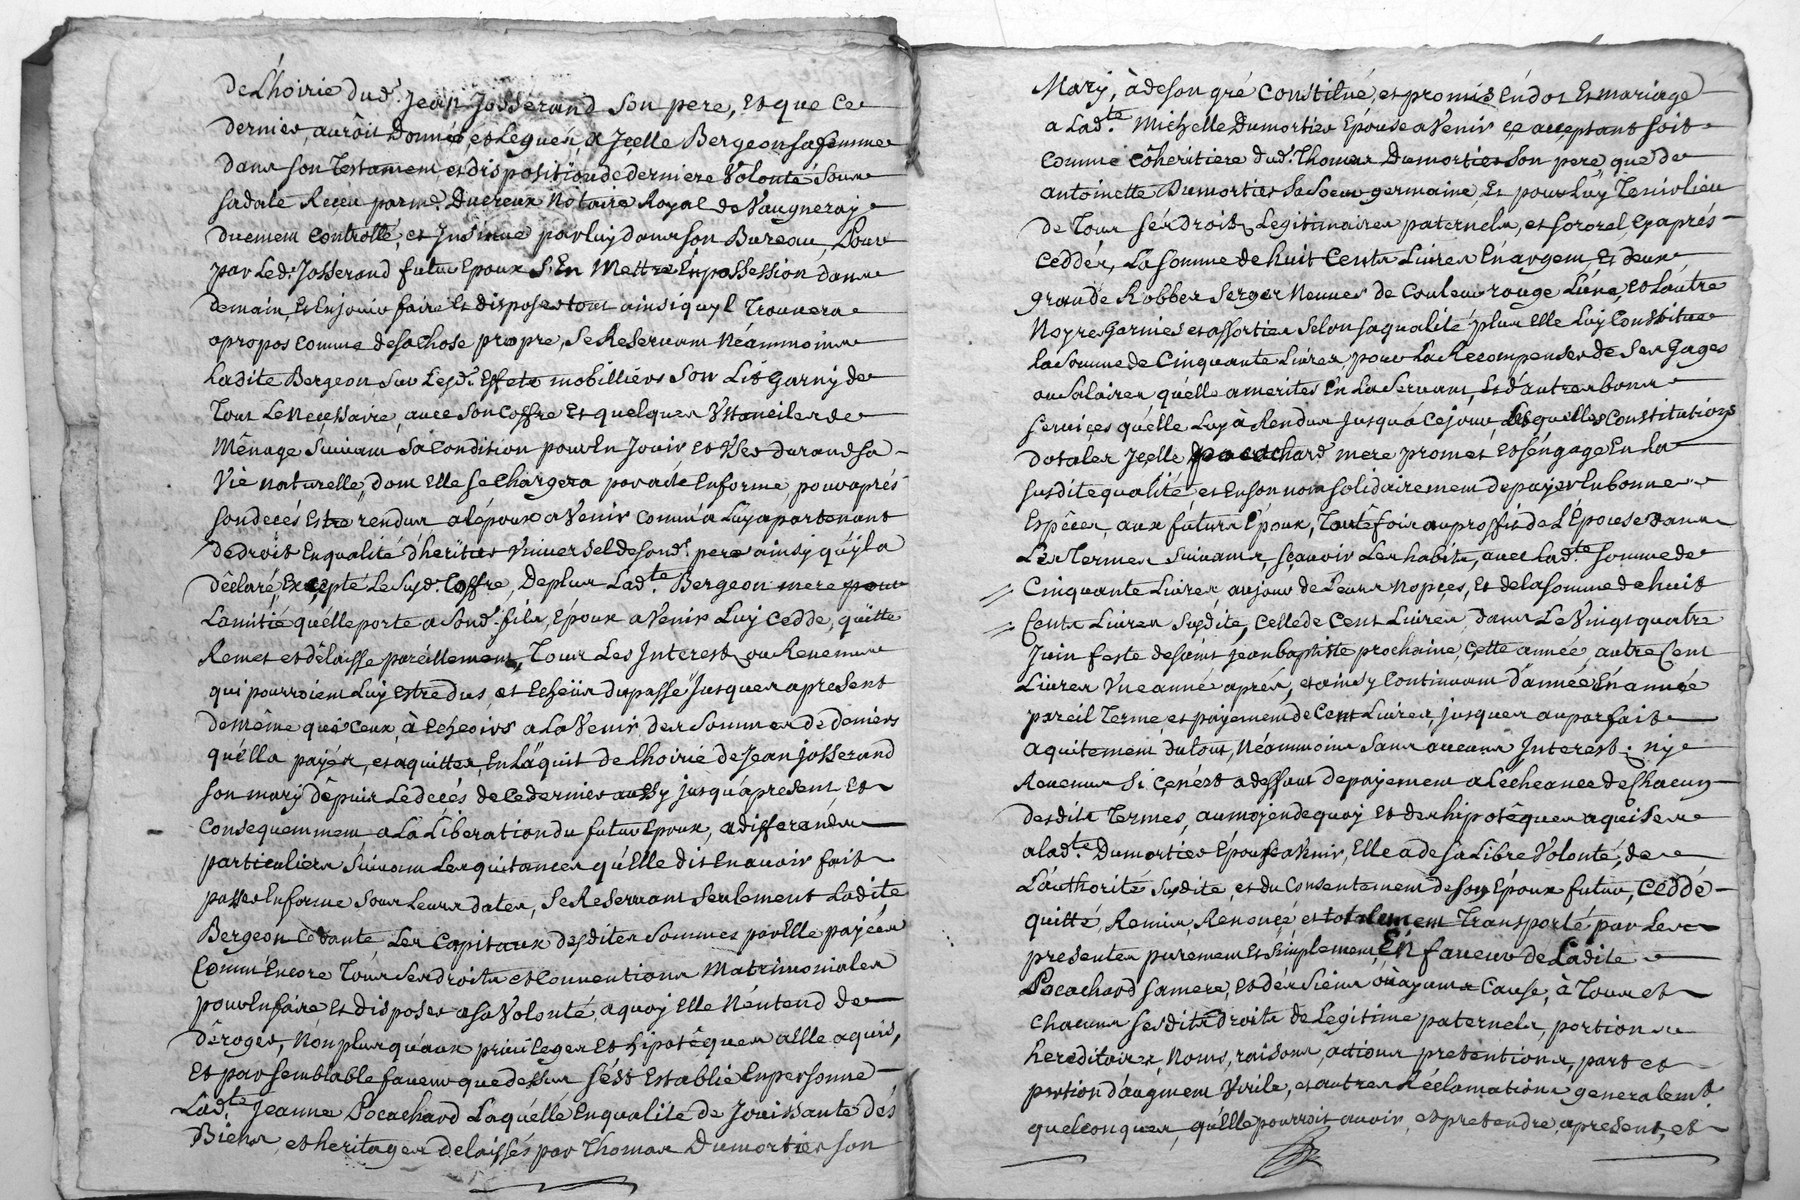 de L'hoirie dud. Jean Josserand son pere, Et que Ce
dernier, auroit Donnée et Leguéé, a Jcelle Bergeon sa femme
dans son Testament et disposition de derniere Volonté, sous
sa date Receu par me. Ducreux Notaire Royal de Vaugneray
duement Controllé, et Jnsinué par luy dans son Bureau, Pour
par Led. Josserand futur Epoux S'En Mettre En possession dans
demain, Et En jouir faire Et disposer tout ainsi quyl Trouvera
apropos comme de sa Chose propre, Se Reservant Néammoins
Ladite Bergeon sur Lesd. Effets mobilliers Son Lit Garny de
Tout Le Necessaire, avec son Coffre Et quelques Ustanciles de
Mênage Suivant Sa Condition pour En Jouir et User durand sa
Vie naturelle, dont Elle se Chargera par acte En forme, pour aprés
son decés Estre rendus a l'époux a Venir Comm'a Luy apartenant
de droit En qualité d'heritier Universel de sond. pere ainsy quyl a
dêclaré, Excepté Le Susd. Coffre, De plus Lad.te Bergeon mere pour
L'amitié qu'elle porte a Sond. fils, Epoux a Venir Luy Cedde, quitte
Remet et dêlaisse pareillement, Tous Les Interest ou Revenus
qui pourroient Luy Estre dus, et Echeüs du passé Jusques apresent
de même que Ceux, à Echeoirs a La Venir des Sommes de deniers
qu'Ella payér, et aquitter, En L'aquit de L'hoirie de Jean Josserand
son mary dêpuis Le decés de Ce dernier aussy jusqu'apresent, Et
Consequemment a La Libération du futur Epoux, a differands
particuliers Suivant Les quitances qu'Elle dit En avoir fait
passer En forme sous Leurs dates, Se Reservant Seulement Ladite
Bergeon Cédante Les Capitaux desdites Sommes par Elle payéés
Comm'Encore Tous Ses droits et Conventions Matrimoniales
pour En faire Et disposer a sa Volonté, a quoy Elle N'entend de
dêroger, Non plus qu'aux privileges Et hipotêques a Elle aquis,
Et par semblable faveur que dessus S'est Establie En personne
Lad.te Jeanne Pocachard Laquélle En qualité de Jouissante dés
Biens, et heritages delaissés par Thomas Dumortier son
Mary, à de son gré Constitué, et promis En dot Et mariage
a Lad.te Michelle Dumortier Epouse a Venir ce acceptant soit
comme côheritiere dud. Thomas Dumortier Son pere, que de
antoinette Dumortier Sa Soeur germaine, Et pour Luy Tenir lieu
de Tous Sés droits Legitimaires paternels, et sororel cy aprés
Ceddés, La somme de huit Cents Livres En argent, Et deux
grande Robbes Serges Neuves de Couleur rouge L'une, Et L'autre
Noyre Garnies et assorties selon sa qualité plus Elle Luy Constitue
la somme de Cinquante Livres, pour La Recompenser de Ses Gages
ou Salaires, quélle a merites En La Servant, Et d'autres bons
services quélle Luy à Rendus Jusqu'à Ce jour, Lesquelles Constitutions
dotales Jcelle Pocachard mere promet Et s'éngage En la
susdite qualité et En son nom solidairement de payer En bonne
Espêces, aux futurs Epoux, Toutêfois au proffit de L'Epouse dans
Les Termes Suivants, sçavoir Les habits, avec Lad.te somme de
Cinquante Livres au jour de Leurs Nopces, Et de la somme de huit
Cents Livres Susdite, Celle de Cent Livres, dans Le Vingt quatre
Juin feste de saint jean baptiste prochaine, Cette année, autre Cent
Livres Une année aprés, et ainsy Continuant D'année En année
pareil Terme et payement de Cent Livres, jusques au parfait
aquitement du tout, Néammoins Sans aucuns Interest ny
Revenus Si Ce n'est a deffaut de payement a L'echeance de Chacun
desdits Termes, au moyen de quoy Et des hipotêques aquises
a lad.te Dumortier Epouse a Venir, Elle a de sa Libre Volonté, de
L'authorité Susdite, et du Consentement de son Epoux futur, Ceddé
quitté, Remis, Renoncé et totalement Transporté par Les
presentes purement Et Simplement, En faveur de Ladite
Pocachard sa mere, Et dés Siens ou ayants Cause, à Tous et
Chacuns sesdits droits de Legitime paternels, portions
hereditaires, Noms, raisons, actions, pretentions, part et
portion d'augment Virile, et autres Réclamations generalemt.
quelconques, qu'Elle pourroit avoir, et pretendre, apresent, et